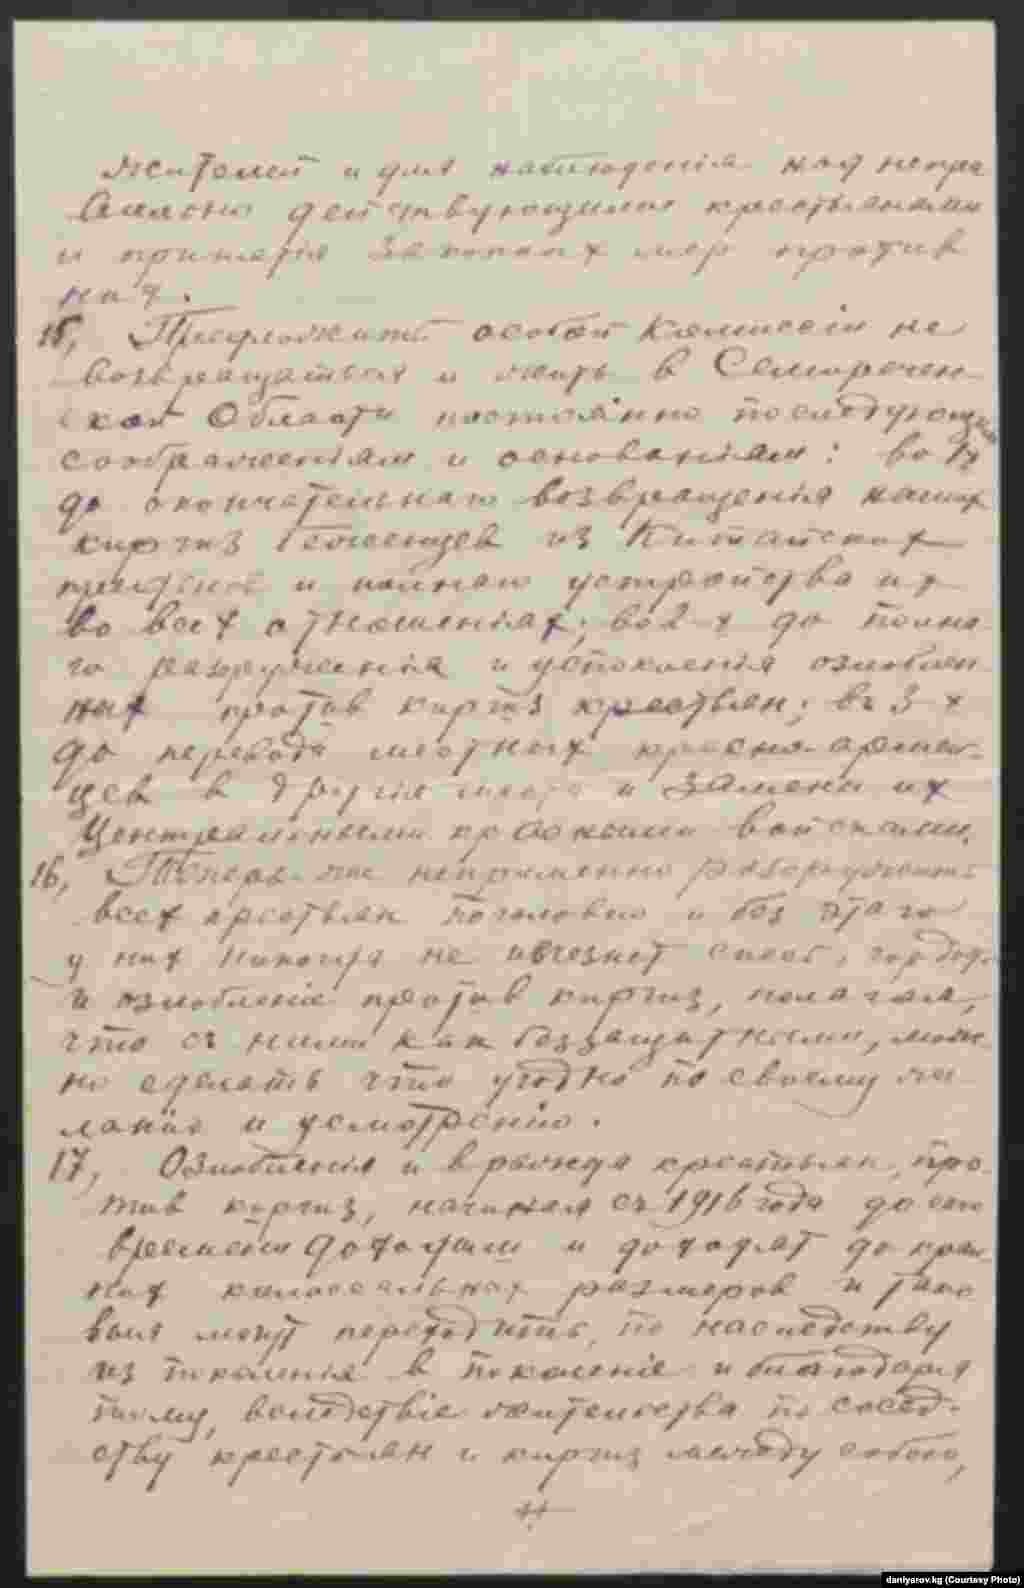 жителей и для наблюдения над непра
вильно действующими крестьянами
и принятия законных мер против
них.
15, Предложить особой Комиссіи не
возвращаться и жить в Семиречен-
ской Области постоянно по следующим
соображеніям и основаніям: во 1х
до окончательнаго возвращенія наших
киргиз беженцев из Китайских
пределов и полнаго устройства их
во всех отношеніях; во 2-х до полна-
го разоруженія и успокоенія озлоблен
ных против киргиз крестьян; въ 3-х
до перевода местных красно-армей-
цев в другія места и замены их
Центральными красными войсками.
16, Теперь-же непременно разоружить
всех крестьян поголовно и без этаго
у них никогда не исчезнет гордость
и озлобленіе против киргиз, полагая,
что съ ними как беззащитными, мож-
но сделать что угодно по своему же-
ланію и усмотренію.
17, Озлобленія и вражда крестьян, про-
тив киргиз, начиная съ 1916 года до сего
времени доходили и доходят до край-
них колоссальных размеров и тако
выя могут переходить, по наследству
из поколенія в поколеніе и благодаря
тому, вследствіе жительства по сосед-
ству крестьян и киргиз между собою,
daniyarov.kg (Courtesy Photo)